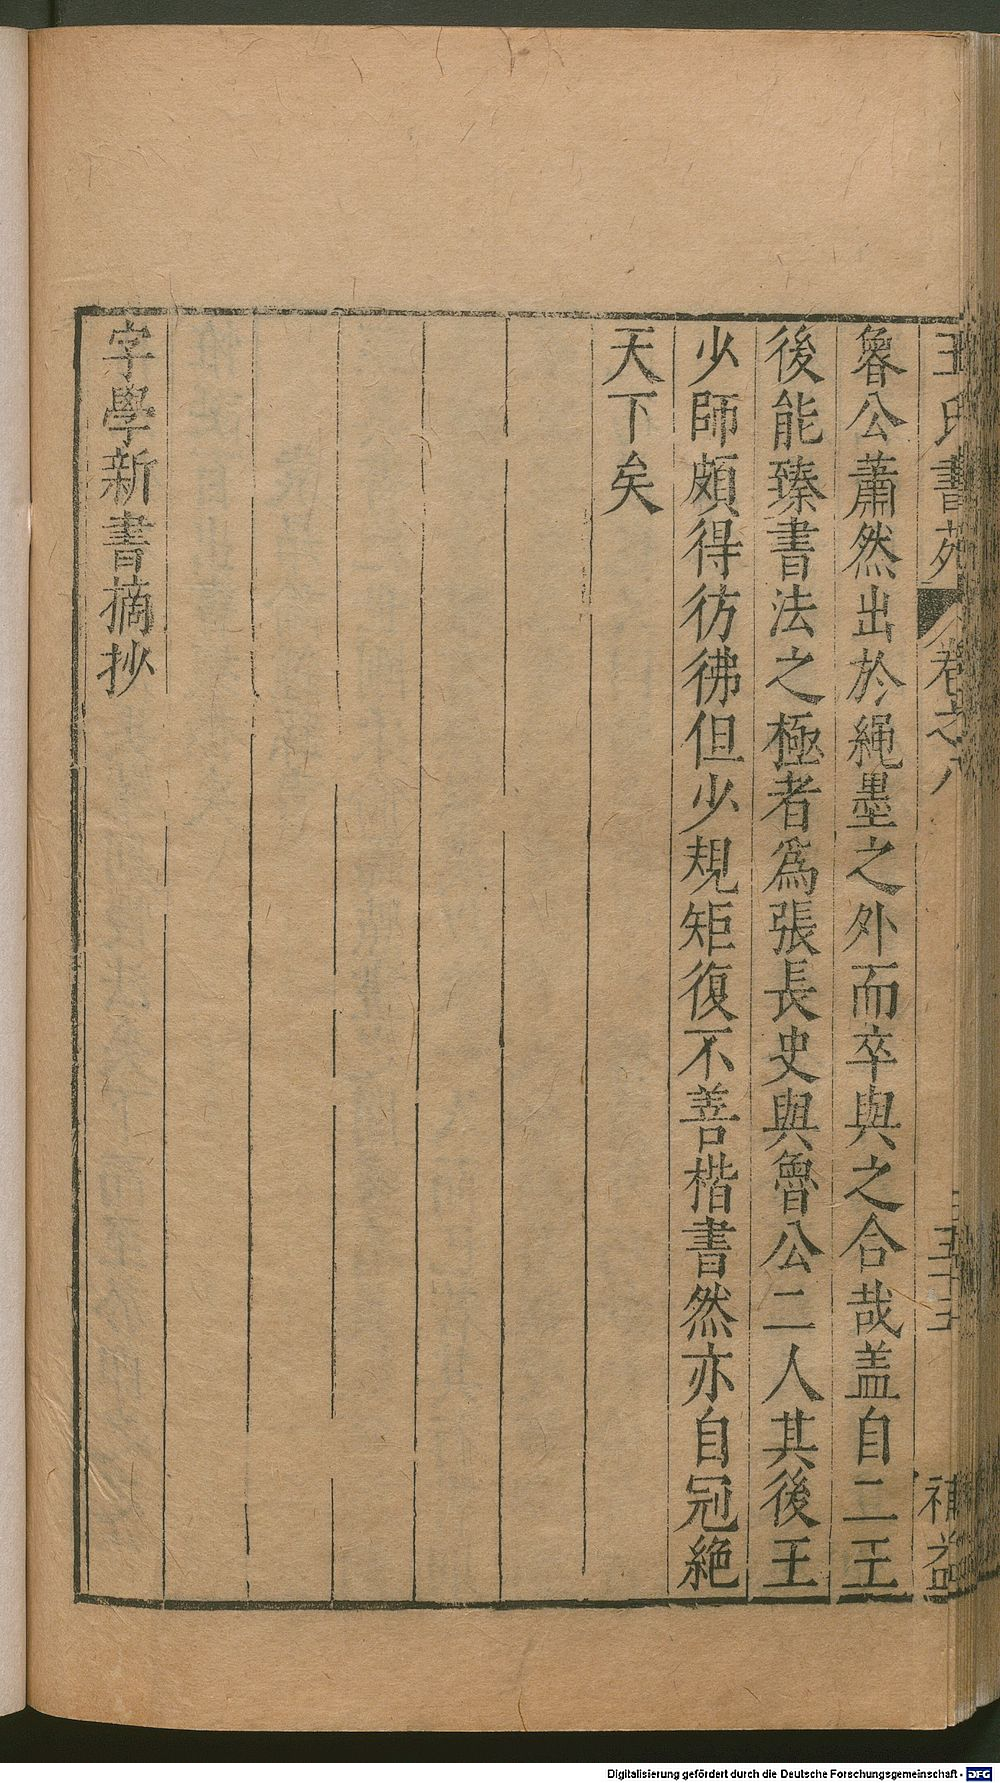 王氏書苑 卷之八 五十五 補益
魯公蕭然出於繩墨之外而卒與之合哉盖自二王
後能臻書法之極者爲張長史與魯公二人其後王
少師頗得彷彿但少規矩復不善楷書然亦自冠絶
天下矣
字學新書摘抄
Digitalisierung gefördert durch die Deutsche Forschungsgemeinschaft - DFG